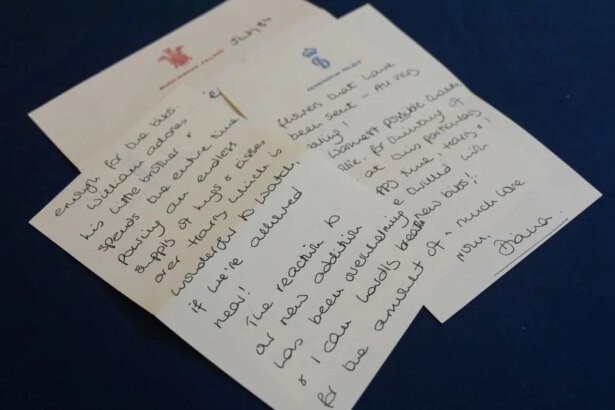 BUCKINGHAM PALACE
KENSINGTON PALACE
enough for the bibs.
William adores
his little brother &
spends the entire time
pouring an endless
supply of hugs & kisses
over Harry which is
wonderful to watch,
if we're allowed
near!
The reaction to
our new addition
has been overwhelming
& I can hardly breathe
for the amount of
flowers that have
been sent -
warmest possible thanks
for thinking of
at this particularly
time, Harry & I
thrilled with
new bibs!
much love
from,
Diana.